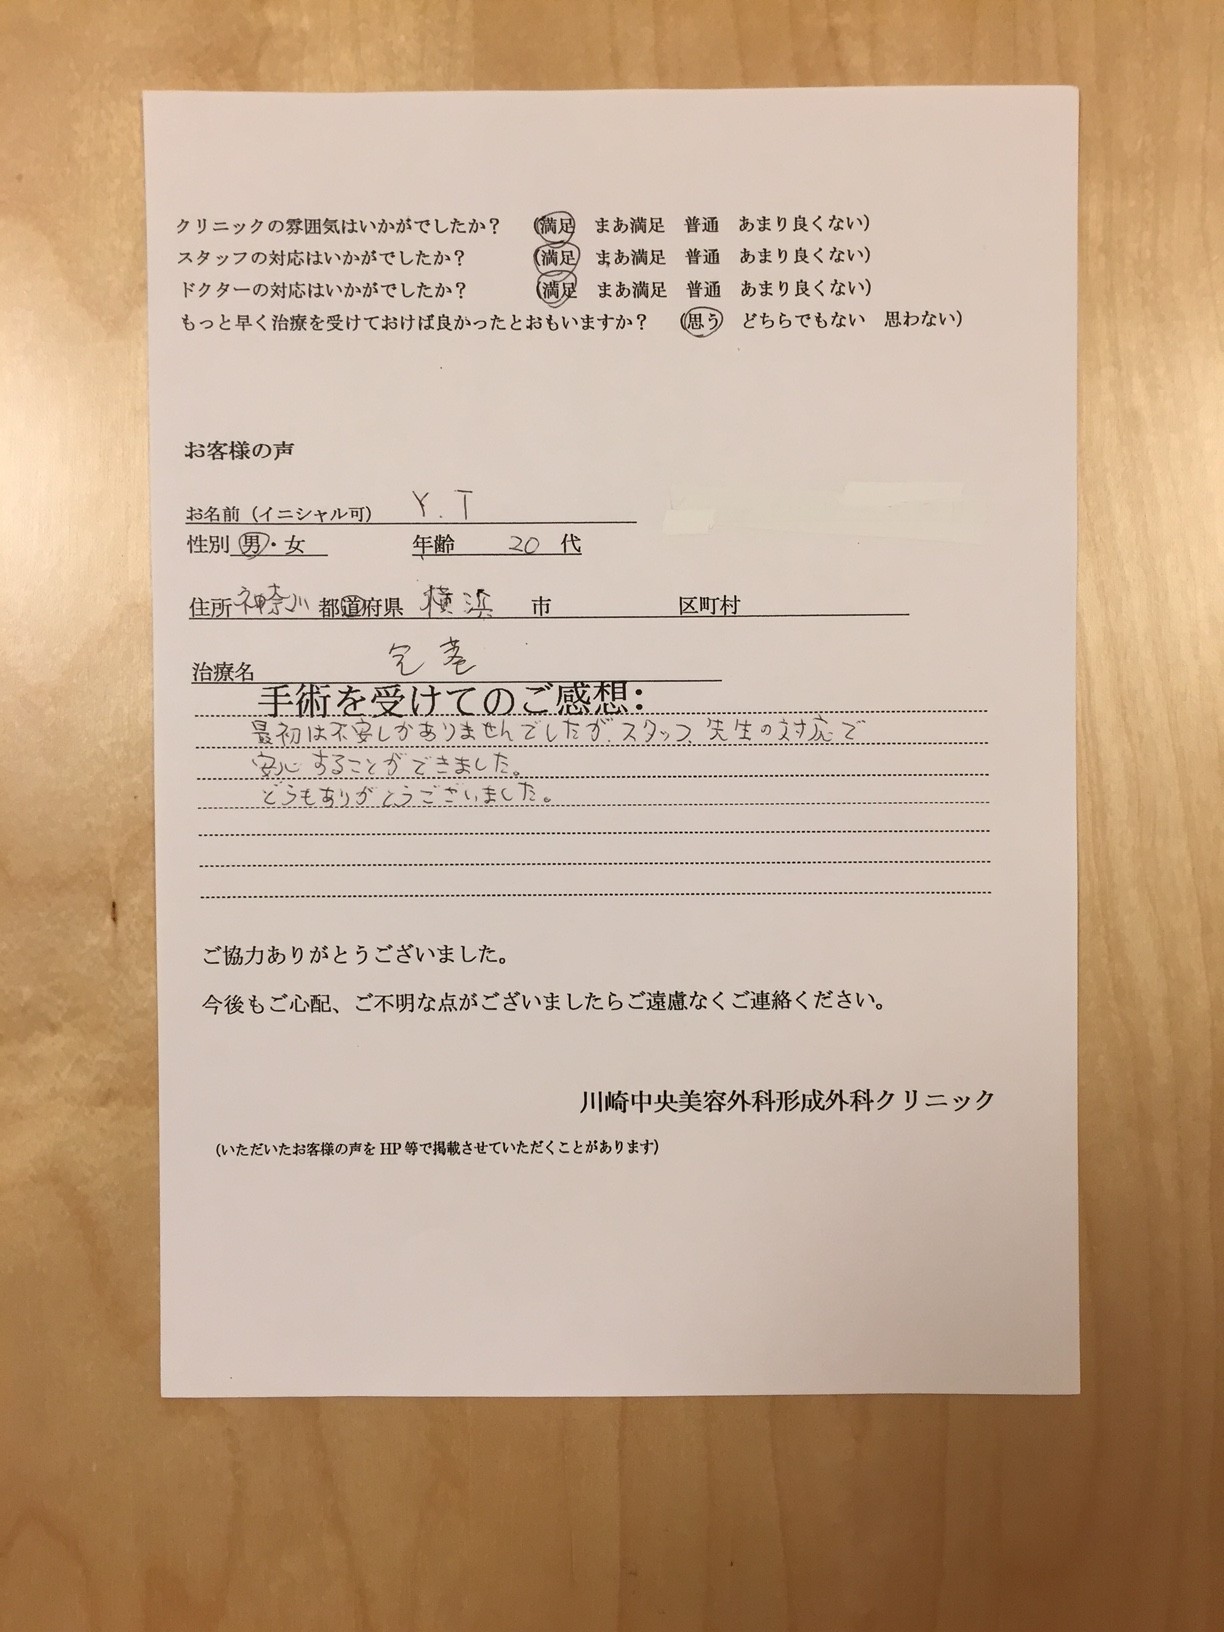 クリニックの雰囲気はいかがでしたか? (満足 まあ満足 普通 あまり良くない)
スタッフの対応はいかがでしたか? (満足 まあ満足 普通 あまり良くない)
ドクターの対応はいかがでしたか? (満足 まあ満足 普通 あまり良くない)
もっと早く治療を受けておけば良かったとおもいますか? (思う どちらでもない 思わない)
お客様の声
お名前(イニシャル可) Y.T
性別 男・女 年齢 20 代
住所 神奈川 都道府県 横浜 市 区町村
治療名
手術を受けてのご感想:
最初は不安しかありませんでしたが、スタッフ、先生の対応で
安心することができました。
どうもありがとうございました。
ご協力ありがとうございました。
今後もご心配、ご不明な点がございましたらご遠慮なくご連絡ください。
川崎中央美容外科形成外科クリニック
(いただいたお客様の声を HP 等で掲載させていただくことがあります)